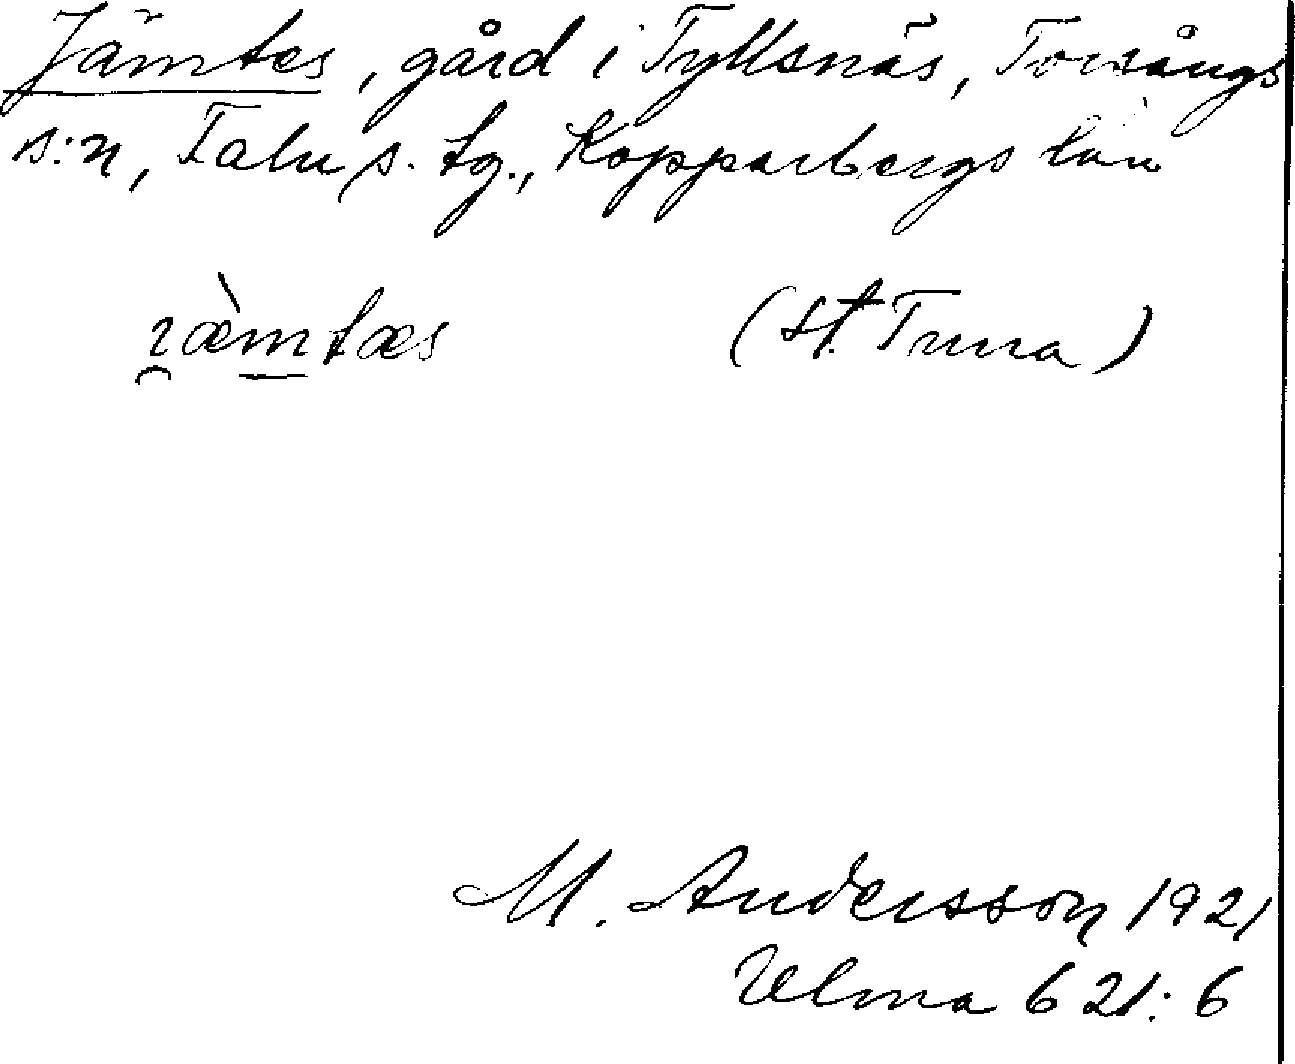 Jämtes, gård i Tyllsnäs, Torsångs
s:n, Falu s. tg., Kopparbergs län
ı̯æ̀mtæs (St. Tuna)
M. Andersson 1921
Ulma 621:6